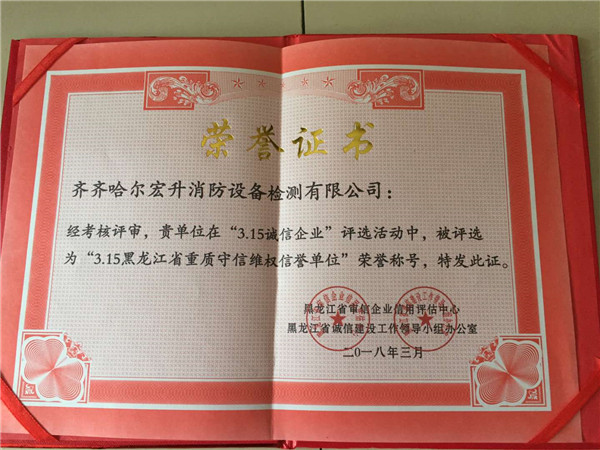 荣誉证书
齐齐哈尔宏升消防设备检测有限公司：
经考核评审，贵单位在“3.15诚信企业”评选活动中，被评选
为“3.15黑龙江省重质守信维权信誉单位”荣誉称号，特发此证。
黑龙江省审信企业信用评估中心
黑龙江省诚信建设工作领导小组办公室
二〇一八年三月